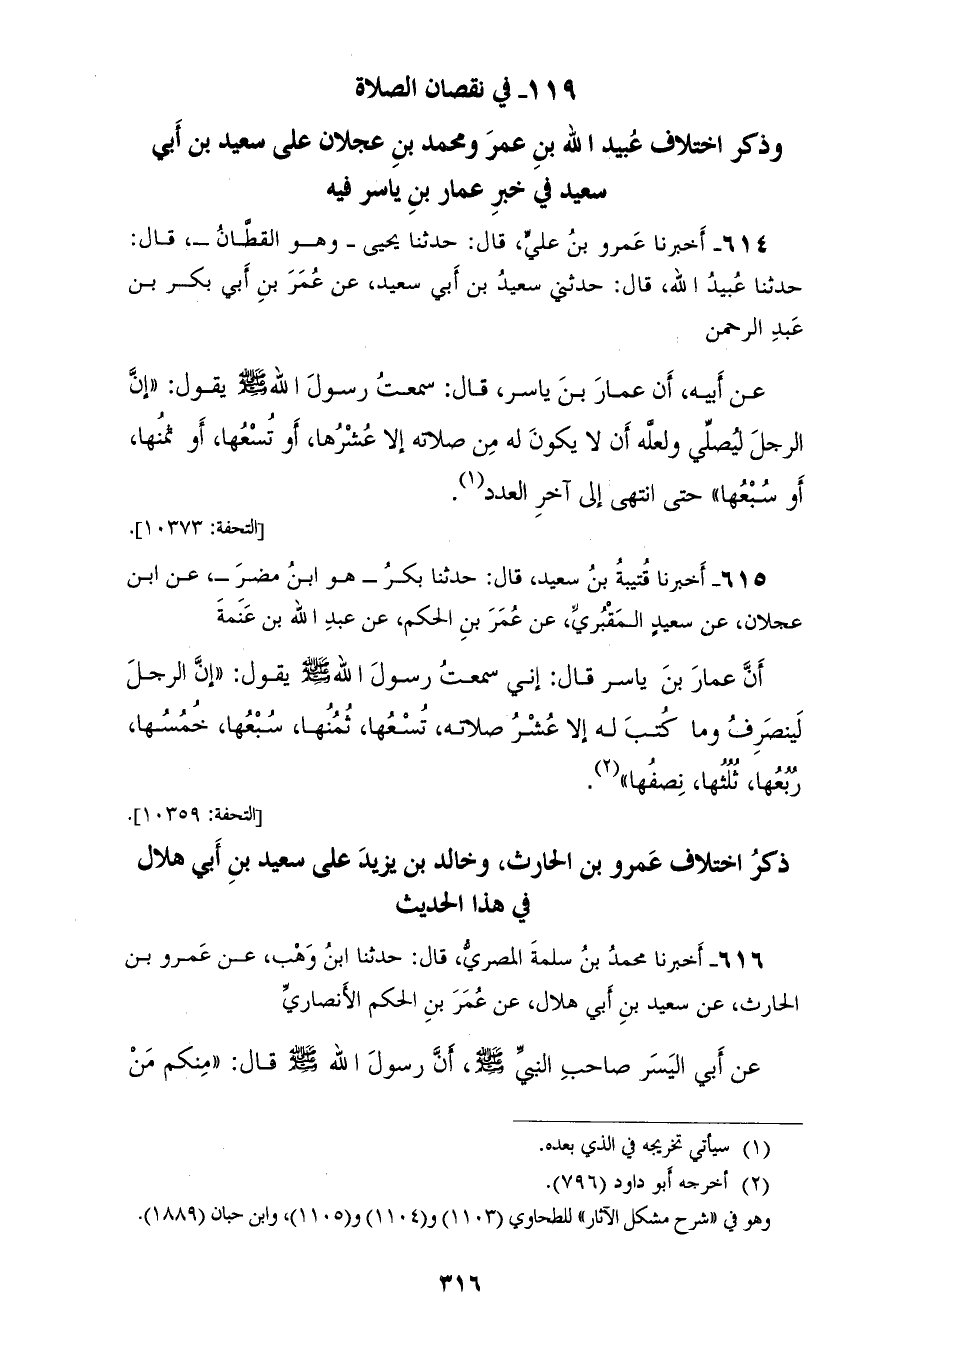 ١١٩ـ في نقصان الصلاة
وذكر اختلاف عُبيد الله بنِ عمرَ ومحمد بنِ عجلان على سعيد بن أَبي
سعيد في خبرِ عمار بنِ ياسر فيه
٦١٤ـ أخبرنا عَمرو بنُ عليٍّ، قال: حدثنا يحيى ـ وهـو القطَّانُ ـ، قـال:
حدثنا عُبيدُ الله، قال: حدثني سعيدُ بن أَبي سعيد، عن عُمَرَ بنِ أَبي بكـر بـن
عَبدِ الرحمن
عـن أَبيـه، أَن عمـارَ بـنَ ياسـر، قـال: سمعـتُ رسـولَ اللهﷺ يقـول: «إنَّ
الرجلَ ليُصلِّي ولعلَّه أَن لا يكونَ له مِن صلاته إلا عُشْرُها، أَو تُسْعُها، أَو ثمُنُها،
أَو سُبْعُها» حتى انتهى إلى آخرِ العدد(١).
[التحفة: ١٠٣٧٣].
٦١٥ـ أخبرنا قُتيبةُ بنُ سعيد، قال: حدثنا بكـرُ ـ هـو ابـنُ مضـرَ ـ، عـن ابـن
عجلان، عن سعيدٍ الـمَقْبُريِّ، عن عُمَرَ بنِ الحكم، عن عبدِ الله بن عَنَمةَ
أَنَّ عمارَ بـنَ ياسـر قـال: إنـي سمعـتُ رسـولَ اللهﷺ يقـول: «إنَّ الرجـلَ
لَينصَرِفُ وما كُتـبَ لـه إلا عُشْـرُ صلاتـه، تُسْعُها، ثُمُنُهـا، سُبْعُها، خُمُسُهـا،
رُبُعُها، ثُلُثُها، نِصفُها»(٢).
[التحفة: ١٠٣٥٩].
ذكرُ اختلاف عَمرو بن الحارث، وخالد بن يزيدَ على سعيد بنِ أَبي هلال
في هذا الحديث
٦١٦ـ أَخبرنا محمدُ بنُ سلمةَ المصريُّ، قال: حدثنا ابنُ وَهْب، عـن عَمـرو بـن
الحارث، عن سعيد بنِ أَبي هلال، عن عُمَرَ بنِ الحكم الأنصاريِّ
عن أَبي اليَسَر صاحبِ النبيِّ ﷺ، أَنَّ رسولَ الله ﷺ قـال: «مِنكم مَنْ
(١) سيأتي تخريجه في الذي بعده.
(٢) أخرجه أبو داود (٧٩٦).
وهو في «شرح مشكل الآثار» للطحاوي (١١٠٣) و(١١٠٤) و(١١٠٥)، وابن حبان (١٨٨٩).
٣١٦